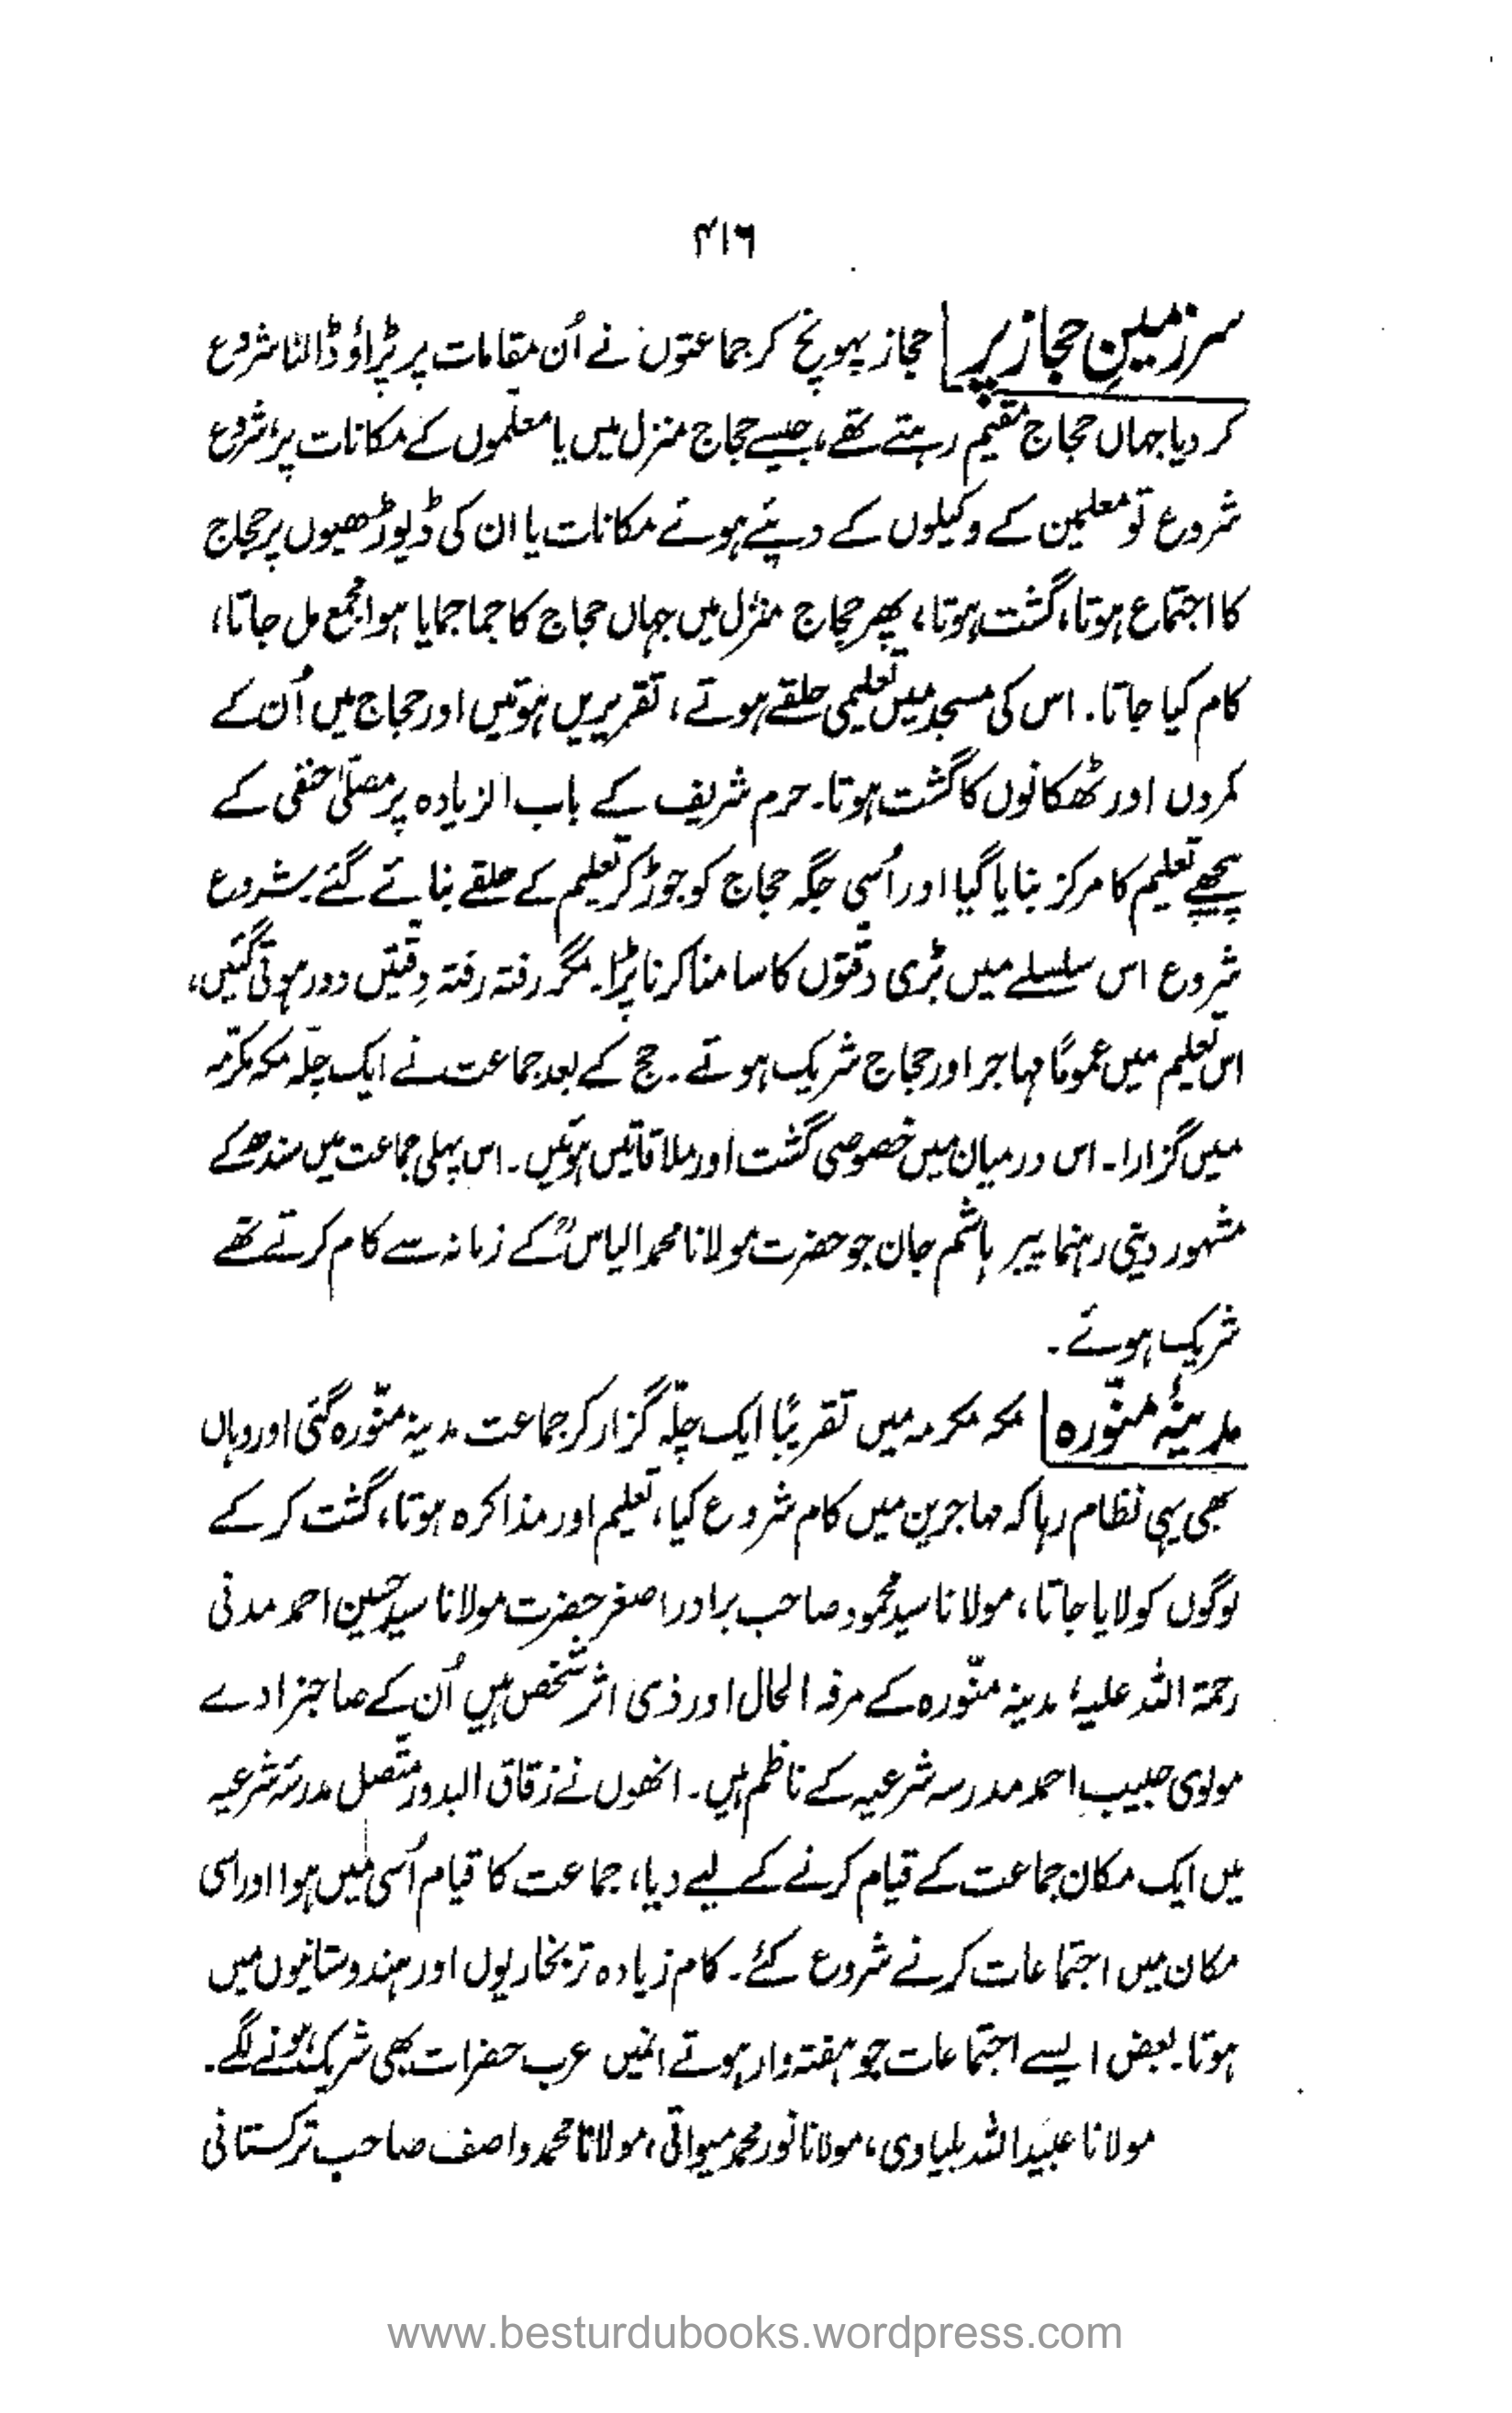 ۴۱۶
سرزمینِ حجاز پر | حجاز پہونچ کر جماعتوں نے اُن مقامات پر پڑاؤ ڈالنا شروع
کر دیا جہاں حجاج مقیم رہتے تھے، جیسے حجاج منزل میں یا معلّموں کے مکانات پر، شروع
شروع تو معلمین کے وکیلوں کے دیئے ہوئے مکانات یا ان کی ڈیوڑھیوں پر حجاج
کا اجتماع ہوتا، گشت ہوتا، پھر حجاج منزل میں جہاں حجاج کا جما جمایا ہوا مجمع مل جاتا،
کام کیا جاتا۔ اس کی مسجد میں تعلیمی حلقے ہوتے، تقریریں ہوتیں اور حجاج میں اُن کے
کمروں اور ٹھکانوں کا گشت ہوتا۔ حرم شریف کے باب الزیادہ پر مصلّیٰ حنفی کے
پیچھے تعلیم کا مرکز بنایا گیا اور اُسی جگہ حجاج کو جوڑ کر تعلیم کے حلقے بنائے گئے۔ شروع
شروع اس سلسلے میں بڑی دقتوں کا سامنا کرنا پڑا۔ مگر رفتہ رفتہ دِقتیں دور ہوتی گئیں،
اس تعلیم میں عموماً مہاجر اور حجاج شریک ہوتے۔ حج کے بعد جماعت نے ایک چلّہ مکہ مکرّمہ
میں گزارا۔ اس درمیان میں خصوصی گشت اور ملاقاتیں ہوئیں۔ اس پہلی جماعت میں سندھ کے
مشہور دینی رہنما پیر ہاشم جان جو حضرت مولانا محمد الیاسؒ کے زمانہ سے کام کرتے تھے
شریک ہوئے۔
مدینۂ منوّرہ | مکہ مکرمہ میں تقریباً ایک چلّہ گزار کر جماعت مدینہ منوّرہ گئی اور وہاں
بھی یہی نظام رہا کہ مہاجرین میں کام شروع کیا، تعلیم اور مذاکرہ ہوتا، گشت کر کے
لوگوں کو لایا جاتا، مولانا سید محمود صاحب برادر اصغر حضرت مولانا سید حسین احمد مدنی
رحمۃ اللہ علیہ، مدینہ منوّرہ کے مرفہ الحال اور ذی اثر شخص ہیں اُن کے صاحبزادے
مولوی حبیب احمد مدرسہ شرعیہ کے ناظم ہیں۔ انھوں نے زقاق البدور متصل مدرسۂ شرعیہ
میں ایک مکان جماعت کے قیام کرنے کے لیے دیا، جماعت کا قیام اُسی میں ہوا اور اسی
مکان میں اجتماعات کرنے شروع کئے۔ کام زیادہ تر بخاریوں اور ہندوستانیوں میں
ہوتا۔ بعض ایسے اجتماعات جو ہفتہ وار ہوتے انمیں عرب حضرات بھی شریک ہونے لگے۔
مولانا عبید اللہ بلیاوی، مولانا نور محمد میواتی، مولانا محمد واصف صاحب ترکستانی
www.besturdubooks.wordpress.com